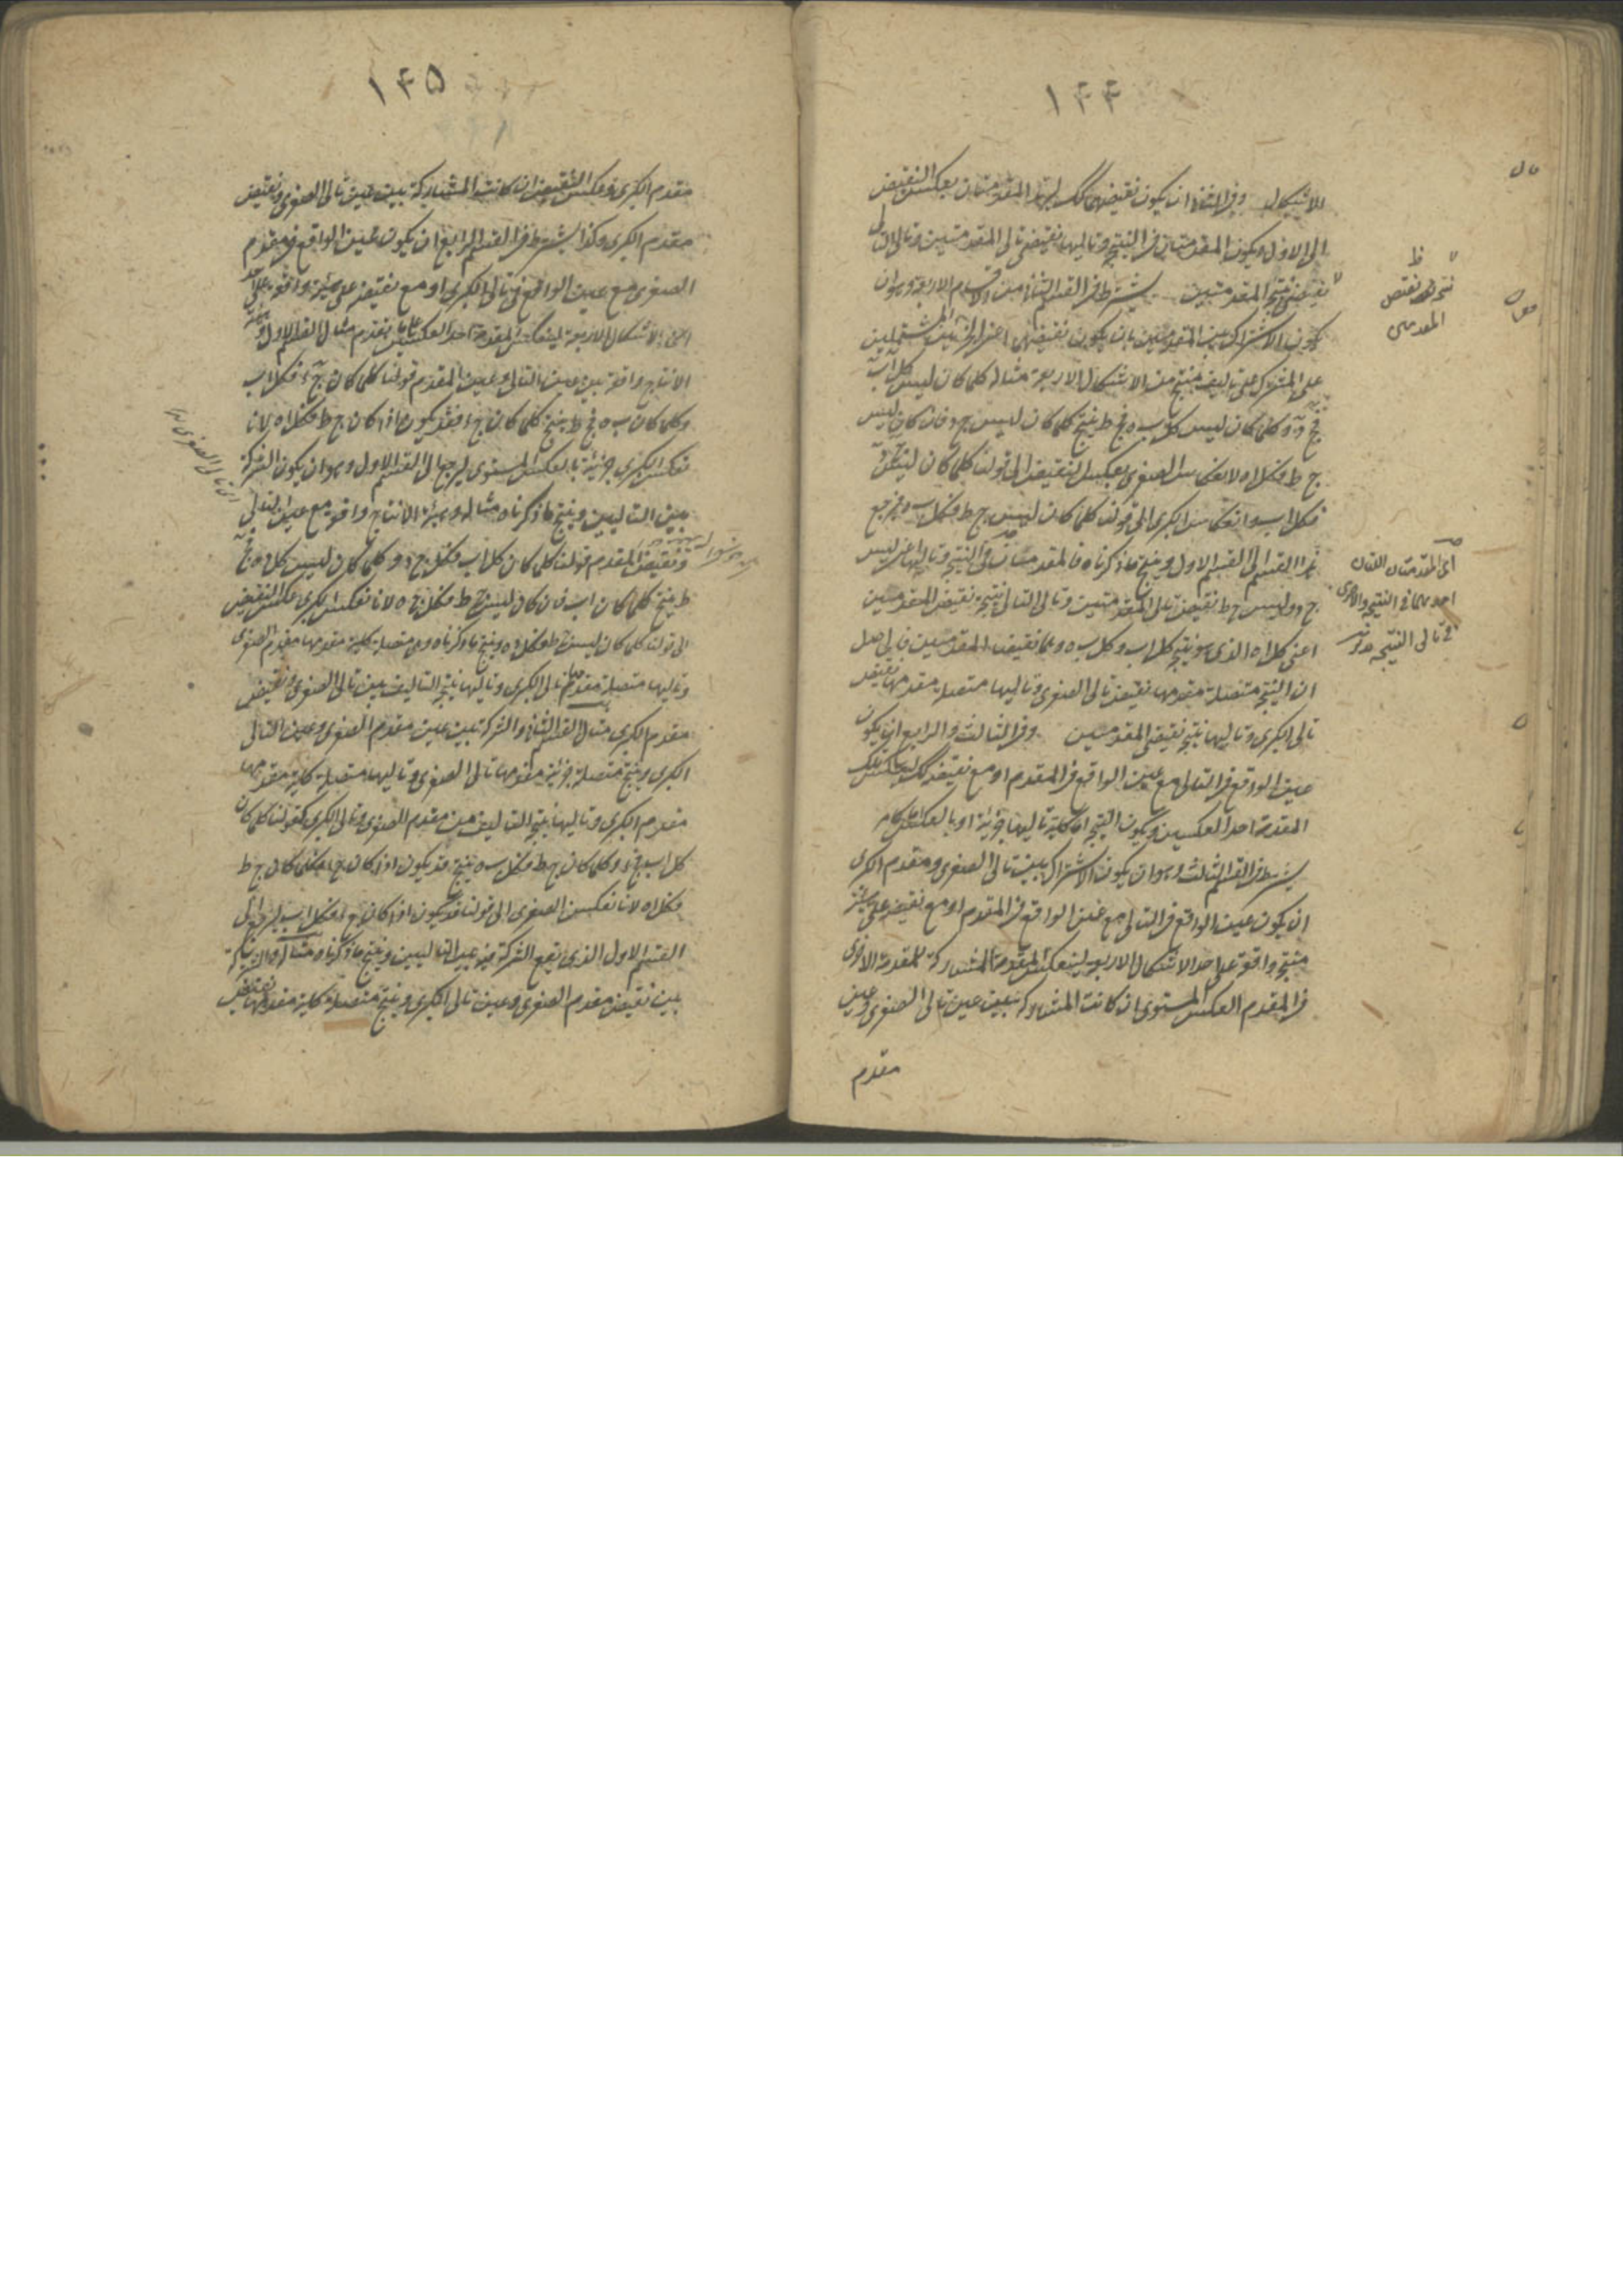 ١٤٤
الاشكال وفي الثاني ان يكون نقيضهما كذلك لتر المقدمتان بعكس النقيض
الى الاول ويكون المقدمتان في النتيجة وتاليها نقيضي تالي المقدمتين وتالي التالي
نقيض نتيجة المقدمتين يشترط في القسم الثاني من الاقسام الاربعة وهو ان
يكون الاشتراك بين المقدمتين بان يكون نقيضهما اعني المشتملين
على المشترك على تاليف منتج من الاشكال الاربعة مثاله كلما كان ليس كل اب
فج د وكلما كان ليس كل ب ه فج ط ينتج كلما كان ليس ج د فان كان ليس
ج ط فكل اه لانعكاس الصغرى بعكس النقيض الى قولنا كلما كان ليس ج د
فكل اب وانعكاس الكبرى الى قولنا كلما كان ليس ج ط فكل ب ه فيرجع
هذا القسم الى القسم الاول وينتج ما ذكرناه فالمقدمتان في النتيجة وتاليها اعني ليس
ج د وليس ج ط نقيض تالي المقدمتين وتالي التالي نتيجة نقيض المقدمتين
اعني كل اه الذي هو نتيجة كل اب وكل ب ه وهما نقيضا المقدمتين فالحاصل
ان النتيجة متصلة مقدمها نقيض تالي الصغرى وتاليها متصلة مقدمها نقيض
تالي الكبرى وتاليها نتيجة نقيضي المقدمتين وفي الثالث والرابع ان يكون
عين الواقع في التالي مع عين الواقع في المقدم او مع نقيضه كذلك لينعكس تلك
المقدمة احد العكسين ويكون النتيجة اما كلية تاليها جزئية او بالعكس كما مر
يشترط في القسم الثالث وهو ان يكون الاشتراك بين تالي الصغرى ومقدم الكبرى
ان يكون عين الواقع في التالي مع عين الواقع في المقدم او مع نقيضه على هيئة
منتجة واقعة على احد الاشكال الاربعة لينعكس المقدمة المشاركة للمقدمة الاخرى
في المقدم العكس المستوي ان كانت المشاركة بين عين تالي الصغرى وعين
مقدم
ظ
نتيجة نقيض
المقدمتين
اي المقدمتان اللتان
احديهما في النتيجة والاخرى
في تالي النتيجة
١٤٥
مقدم الكبرى وعكس النقيض ان كانت المشاركة بين عين تالي الصغرى ونقيض
مقدم الكبرى وكذا يشترط في القسم الرابع ان يكون عين الواقع في مقدم
الصغرى مع عين الواقع في تالي الكبرى او مع نقيضه على هيئة واقعة على احد
الاشكال الاربعة لينعكس المقدمة احد العكسين على ما تقدم مثال القسم الاول
الانتاج واقعة بين عين التالي وعين المقدم قولنا كلما كان ج د فكل اب
وكلما كان ب ه فج ط ينتج كلما كان ج د فقد يكون اذا كان ج ط فكل اه لانا
نعكس الكبرى جزئية بالعكس المستوي ليرجع الى القسم الاول وهو ان يكون الشركة
بين التاليين وينتج ما ذكرناه مثاله وهيئة الانتاج واقعة مع عين التالي
ونقيض المقدم قولنا كلما كان كل اب فكل ج د وكلما كان ليس كل د ه فج
ط ينتج كلما كان اب فان كان ليس ج ط فكل ج ه لانا نعكس الكبرى عكس النقيض
الى قولنا كلما كان ليس ج ط فكل د ه وينتج ما ذكرناه وهي متصلة كلية مقدمها مقدم الصغرى
وتاليها متصلة مقدمها تالي الكبرى وتاليها نتيجة التاليف بين تالي الصغرى ونقيض
مقدم الكبرى مثال القسم الثاني والشركة بين عين مقدم الصغرى وعين التالي
الكبرى وينتج متصلة جزئية مقدمها تالي الصغرى وتاليها متصلة كلية مقدمها
مقدم الكبرى وتاليها نتيجة التاليف من مقدم الصغرى وتالي الكبرى كقولنا كلما كان
كل اب فج د وكلما كان ج ط فكل ب ه ينتج قد يكون اذا كان ج د فكلما كان ج ط
فكل اه لانا نعكس الصغرى الى قولنا قد يكون اذا كان ج د فكل اب ليرجع الى
القسم الاول الذي يقع الشركة فيه بين التاليين وينتج ما ذكرناه مثاله والشركة
بين نقيض مقدم الصغرى وعين تالي الكبرى وينتج متصلة كلية مقدمها نقيض
اي تالي الصغرى